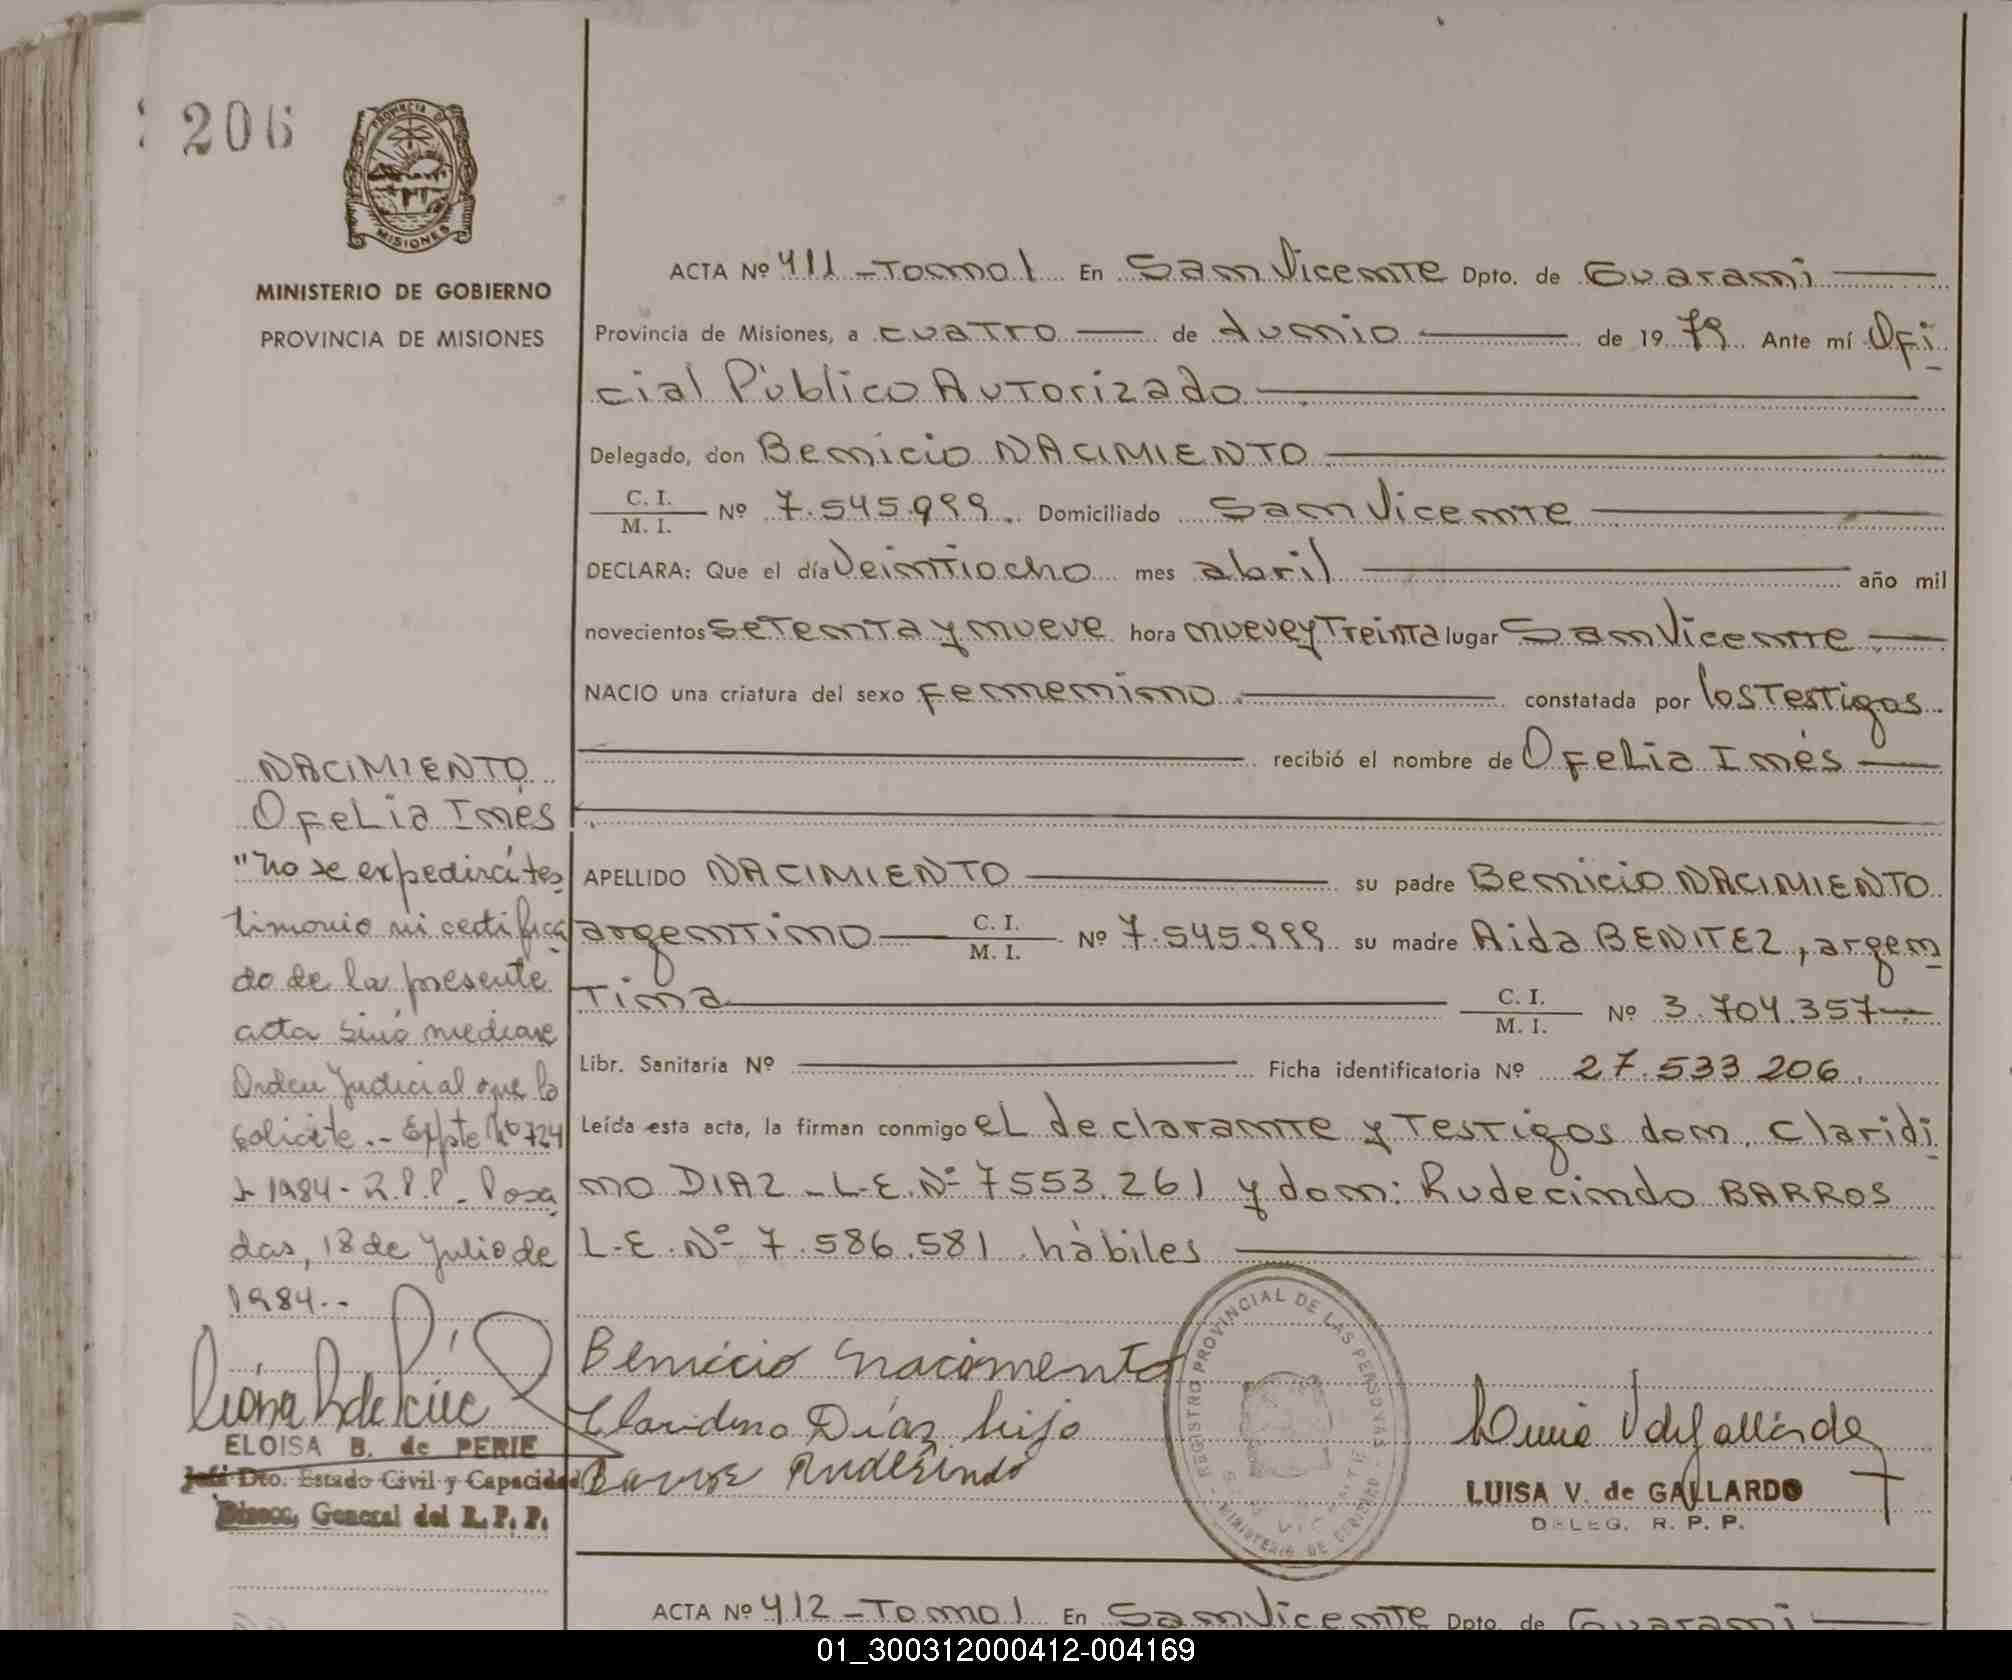 206
PROVINCIA DE
MISIONES
MINISTERIO DE GOBIERNO
PROVINCIA DE MISIONES
ACTA Nº 411 - Tomo 1 En San Vicente Dpto. de Guaraní
Provincia de Misiones, a cuatro de Junio de 1979 Ante mí Ofi
cial Público Autorizado
Delegado, don Benicio NACIMIENTO
C. I.
M. I. Nº 7.545.999. Domiciliado San Vicente
DECLARA: Que el día Veintiocho mes abril año mil
novecientos setenta y nueve hora nueve y treinta lugar San Vicente
NACIO una criatura del sexo femenino constatada por los testigos
recibió el nombre de Ofelia Inés
NACIMIENTO
Ofelia Inés
"No se expedirá tes
timonio ni certifica
do de la presente
acta sinó mediante
Orden Judicial que lo
solicite.- Expte Nº 724
1984 - R.P.P. - Posa
das, 18 de Julio de
1984.-
ELOISA B. de PERIE
Jefi Dto. Estado Civil y Capacidad
Direcc. General del R. P. P.
APELLIDO NACIMIENTO su padre Benicio NACIMIENTO
argentino C. I. M. I. Nº 7.545.999 su madre Aida BENITEZ, argen
tina C. I. M. I. Nº 3.704.357
Libr. Sanitaria Nº Ficha identificatoria Nº 27.533.206
Leída esta acta, la firman conmigo el declarante y testigos don. Claridi
no DIAZ - L.E. Nº 7553.261 y don: Rudecindo BARROS
L.E. Nº 7.586.581 hàbiles
Benicio Nacimento
Claridino Díaz hijo
Rudesindo
REGISTRO PROVINCIAL DE LAS PERSONAS
SAN VICENTE
MINISTERIO DE GOBIERNO
LUISA V. de GALLARDO
DELEG. R. P. P.
ACTA Nº 412 - Tomo 1 En San Vicente Dpto. de Guaraní
01_300312000412-004169